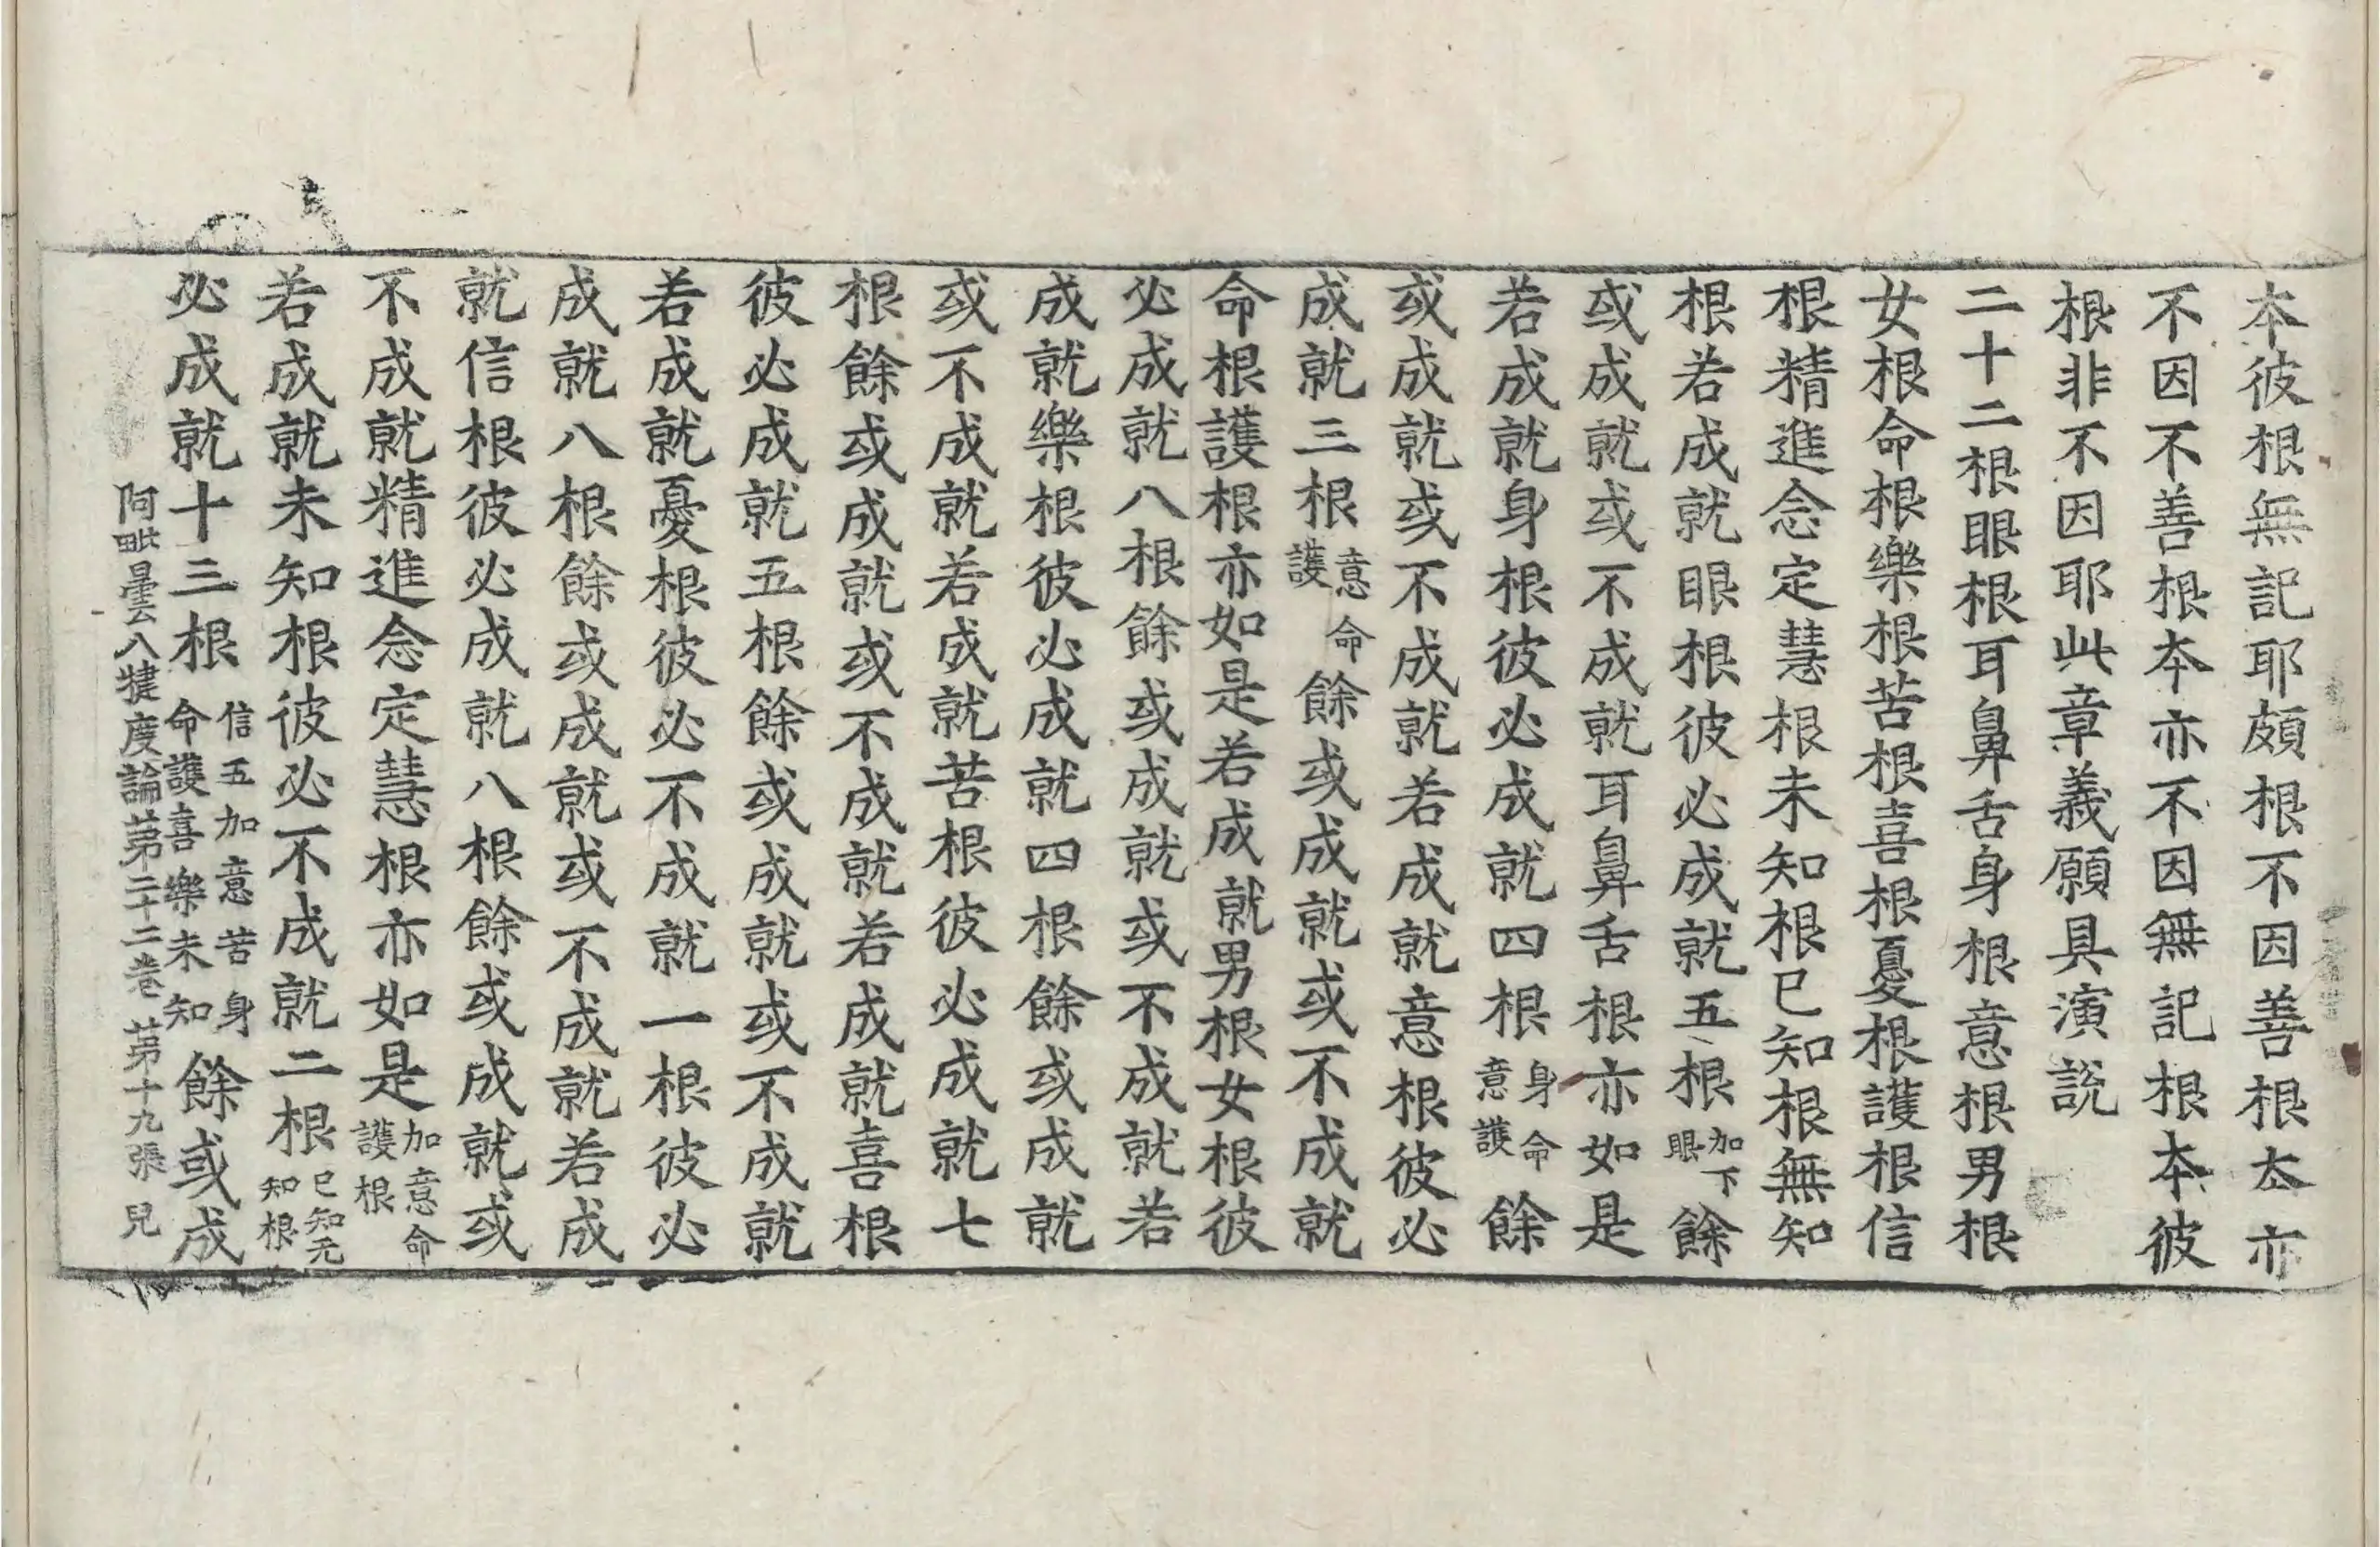 本彼根無記耶頗根不因善根夲亦
不因不善根夲亦不因無記根夲彼
根非不因耶此章義願具演說
二十二根眼根耳鼻舌身根意根男根
女根命根樂根苦根喜根憂根護根信
根精進念定慧根未知根已知根無知
根若成就眼根彼必成就五根加下眼餘
或成就或不成就耳鼻舌根亦如是
若成就身根彼必成就四根身命意護餘
或成就或不成就若成就意根彼必
成就三根意命護餘或成就或不成就
命根護根亦如是若成就男根女根彼
必成就八根餘或成就或不成就若
成就樂根彼必成就四根餘或成就
或不成就若成就苦根彼必成就七
根餘或成就或不成就若成就喜根
彼必成就五根餘或成就或不成就
若成就憂根彼必不成就一根彼必
成就八根餘或成就或不成就若成
就信根彼必成就八根餘或成就或
不成就精進念定慧根亦如是加意命護根
若成就未知根彼必不成就二根已知无知根
必成就十三根信五加意苦身命護喜樂未知餘或成
阿毗曇八犍度論第二十二卷 第十九張 兒